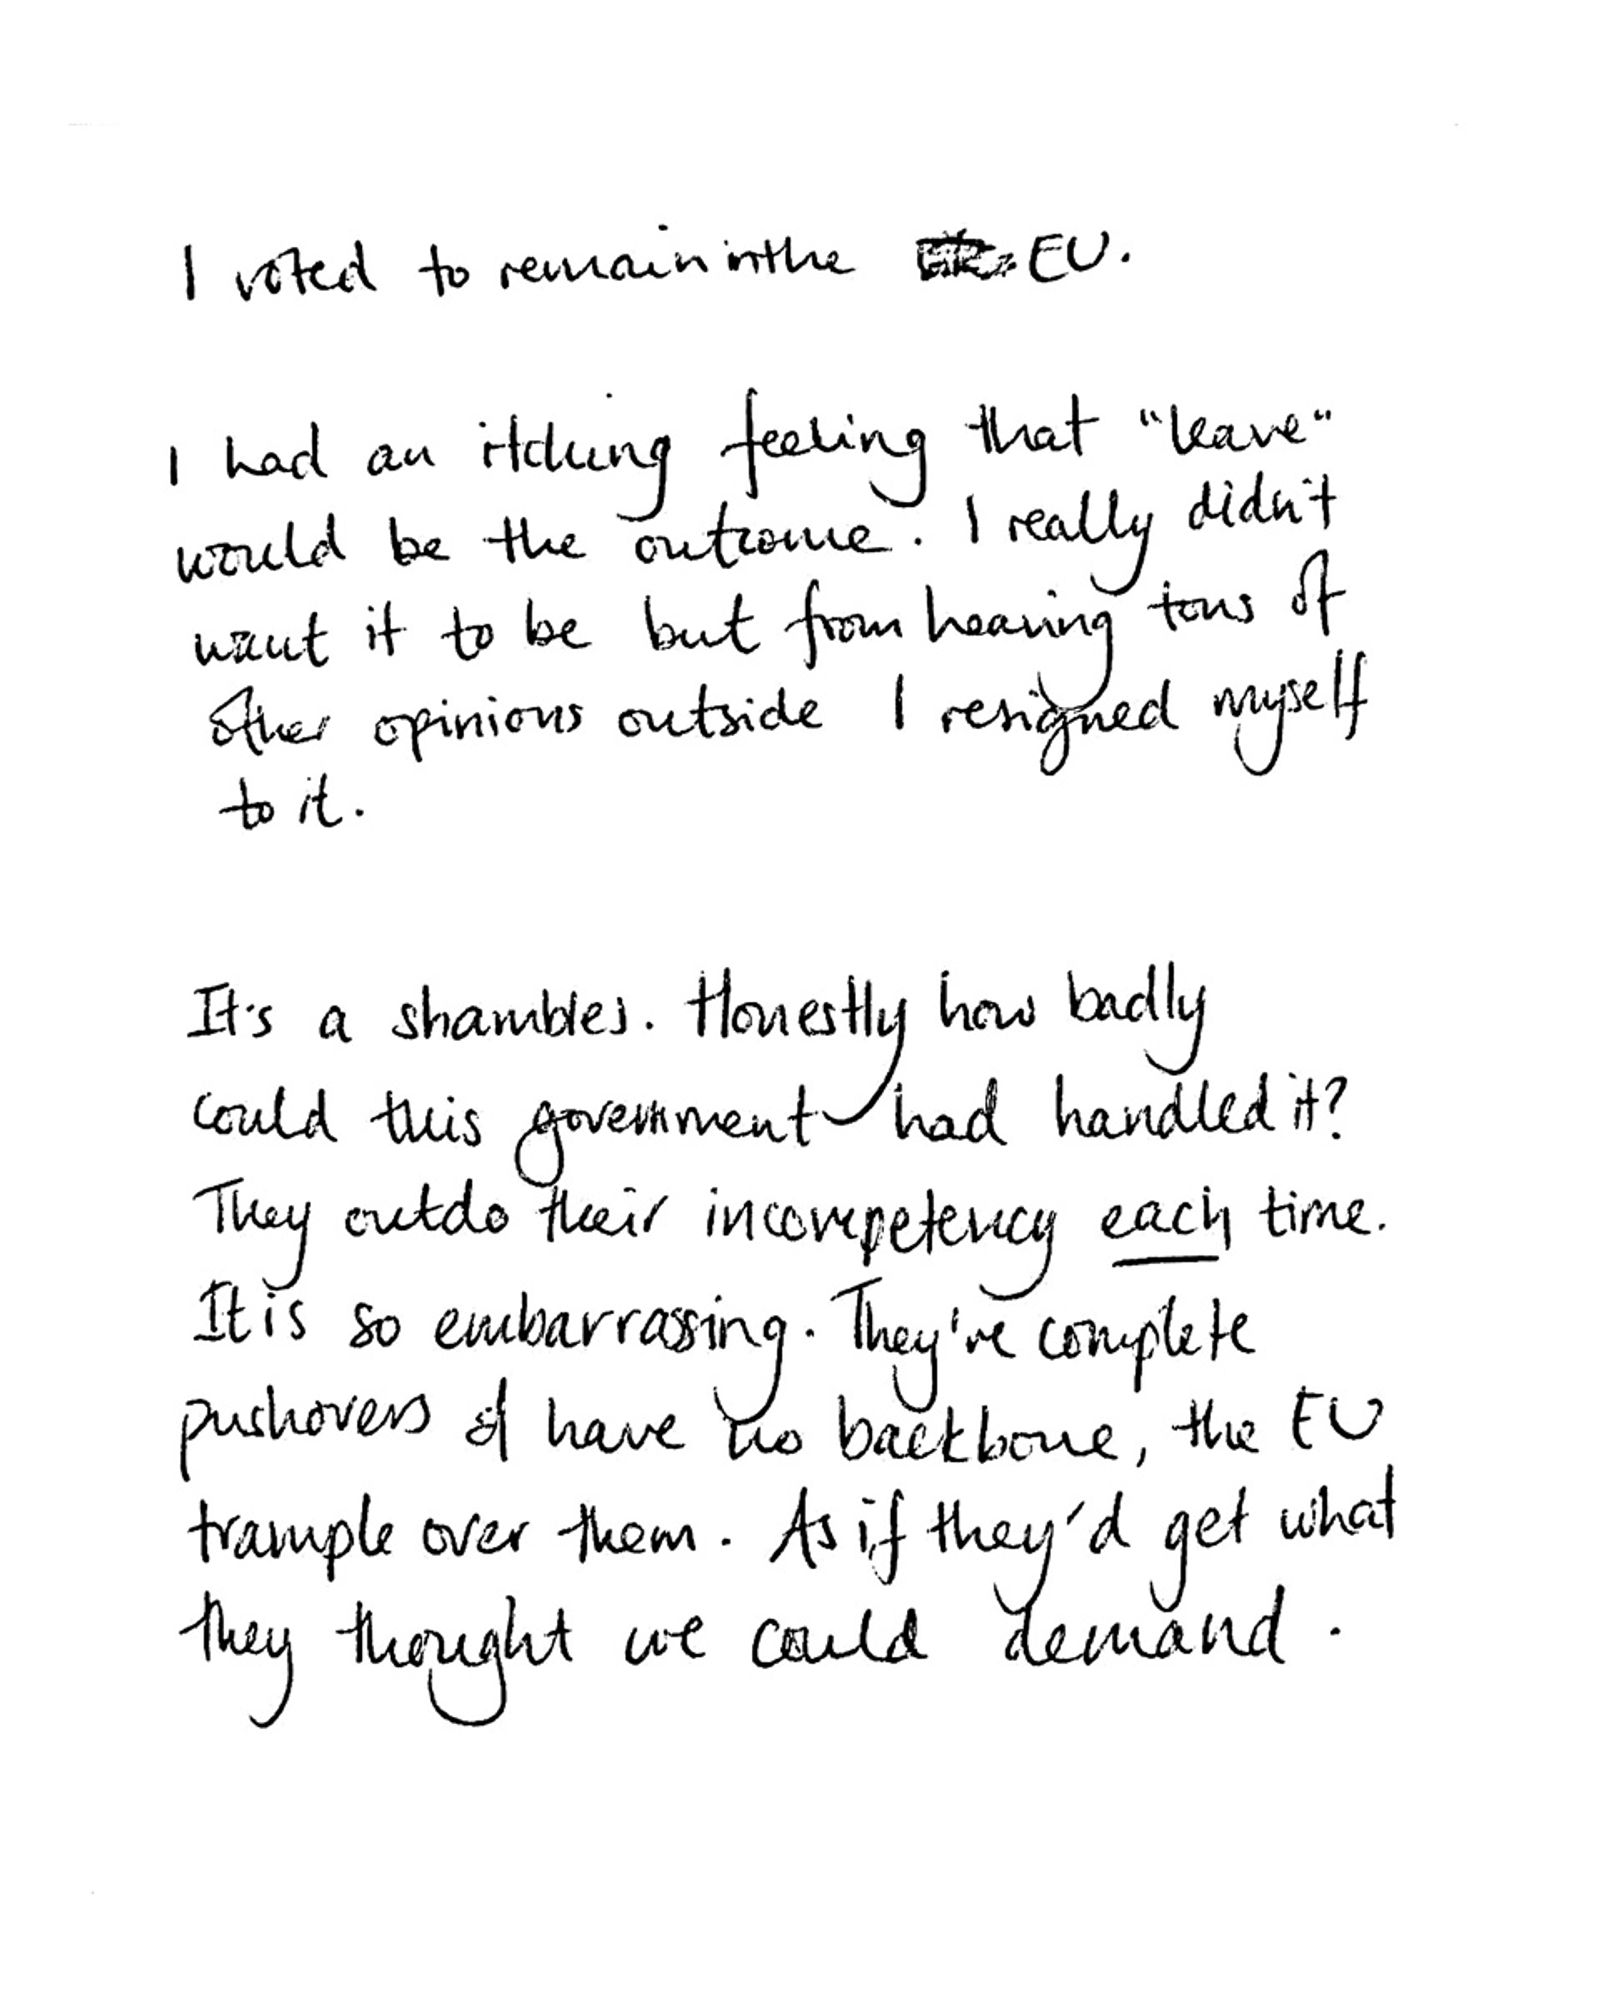 I voted to remain in the EU.
I had an itching feeling that "leave"
would be the outcome. I really didn't
want it to be but from hearing tons of
other opinions outside I resigned myself
to it.
It's a shambles. Honestly how badly
could this government had handled it?
They outdo their incompetency each time.
It is so embarrassing. They're complete
pushovers & have no backbone, the EU
trample over them. As if they'd get what
they thought we could demand.